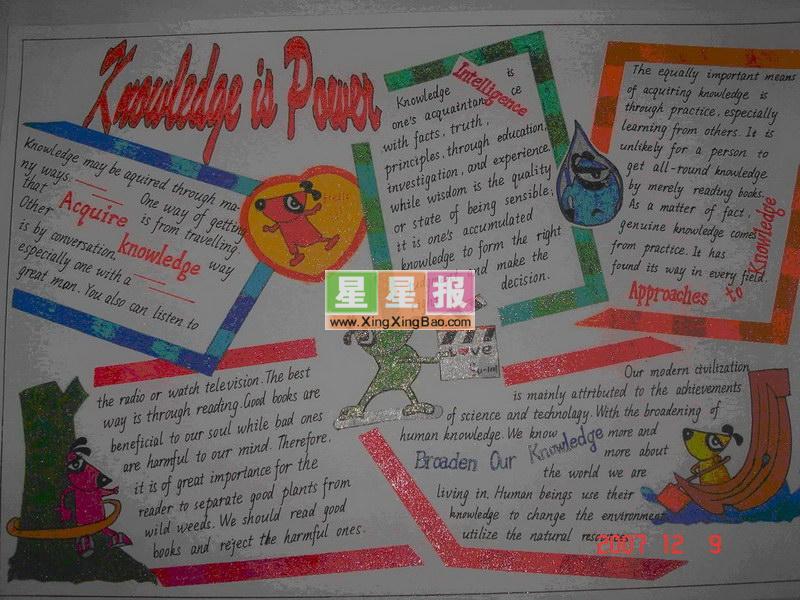 Knowledge is Power
Knowledge may be aquired through ma-
ny ways:
One way of getting
that
is from travelling.
Acquire
knowledge
Other
way
is by conversation,
especially one with a
great man. You also can listen to
the radio or watch television. The best
way is through reading. Good books are
beneficial to our soul while bad ones
are harmful to our mind. Therefore,
it is of great importance for the
reader to separate good plants from
wild weeds. We should read good
books and reject the harmful ones.
Intelligence
Knowledge is
one's acquaintance
with facts, truth,
principles, through education,
investigation, and experience.
while wisdom is the quality
or state of being sensible;
it is one's accumulated
knowledge to form the right
and make the
decision.
The equally important means
of acquiring knowledge is
through practice, especially
learning from others. It is
unlikely for a person to
get all-round knowledge
by merely reading books.
As a matter of fact,
genuine knowledge comes
from practice. It has
found its way in every field.
Approaches to Knowledge
星星报
www.XingXingBao.com
Love
Our modern civilization
is mainly attributed to the achievements
of science and technology. With the broadening of
human knowledge. We know more and
Broaden Our Knowledge
more about
the world we are
living in. Human beings use their
knowledge to change the environment
utilize the natural resources
2007 12 9